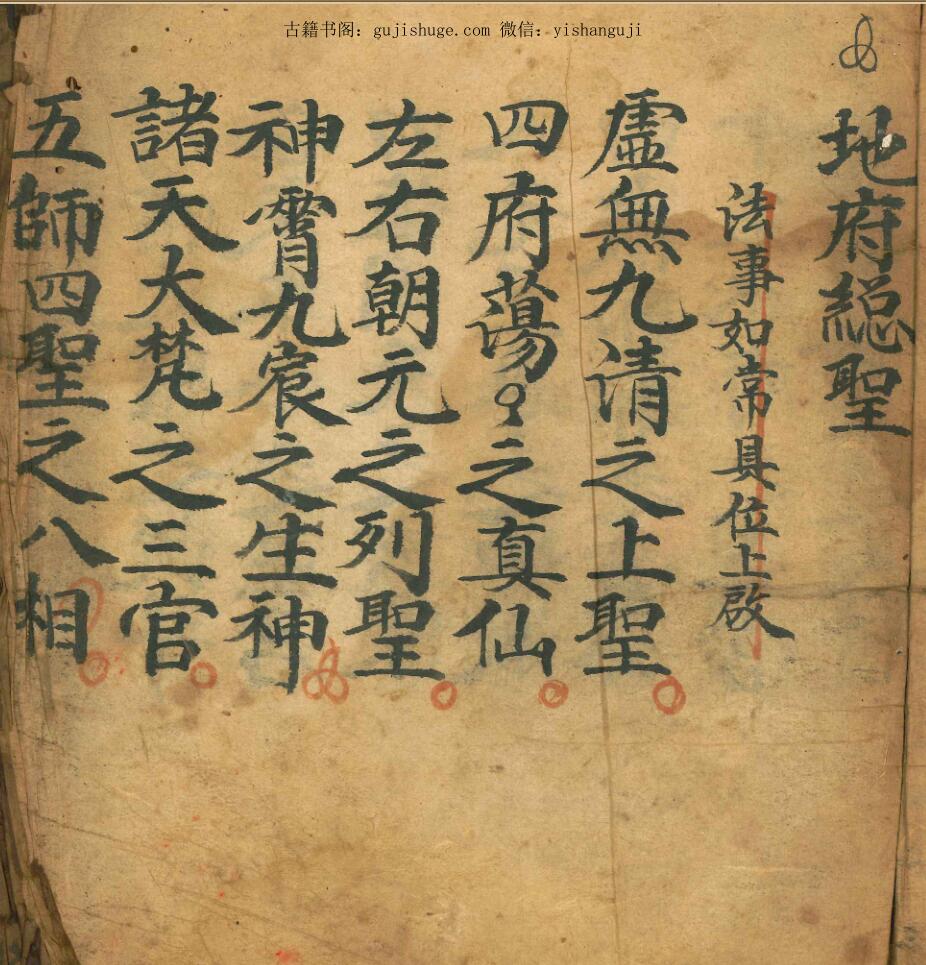 古籍书阁：gujishuge.com 微信：yishanguji
地府総聖
法事如常具位上啟
虛無九请之上聖
四府蕩〻之真仙
左右朝元之列聖
神霄九宸之生神
諸天大梵之三官
五師四聖之八相